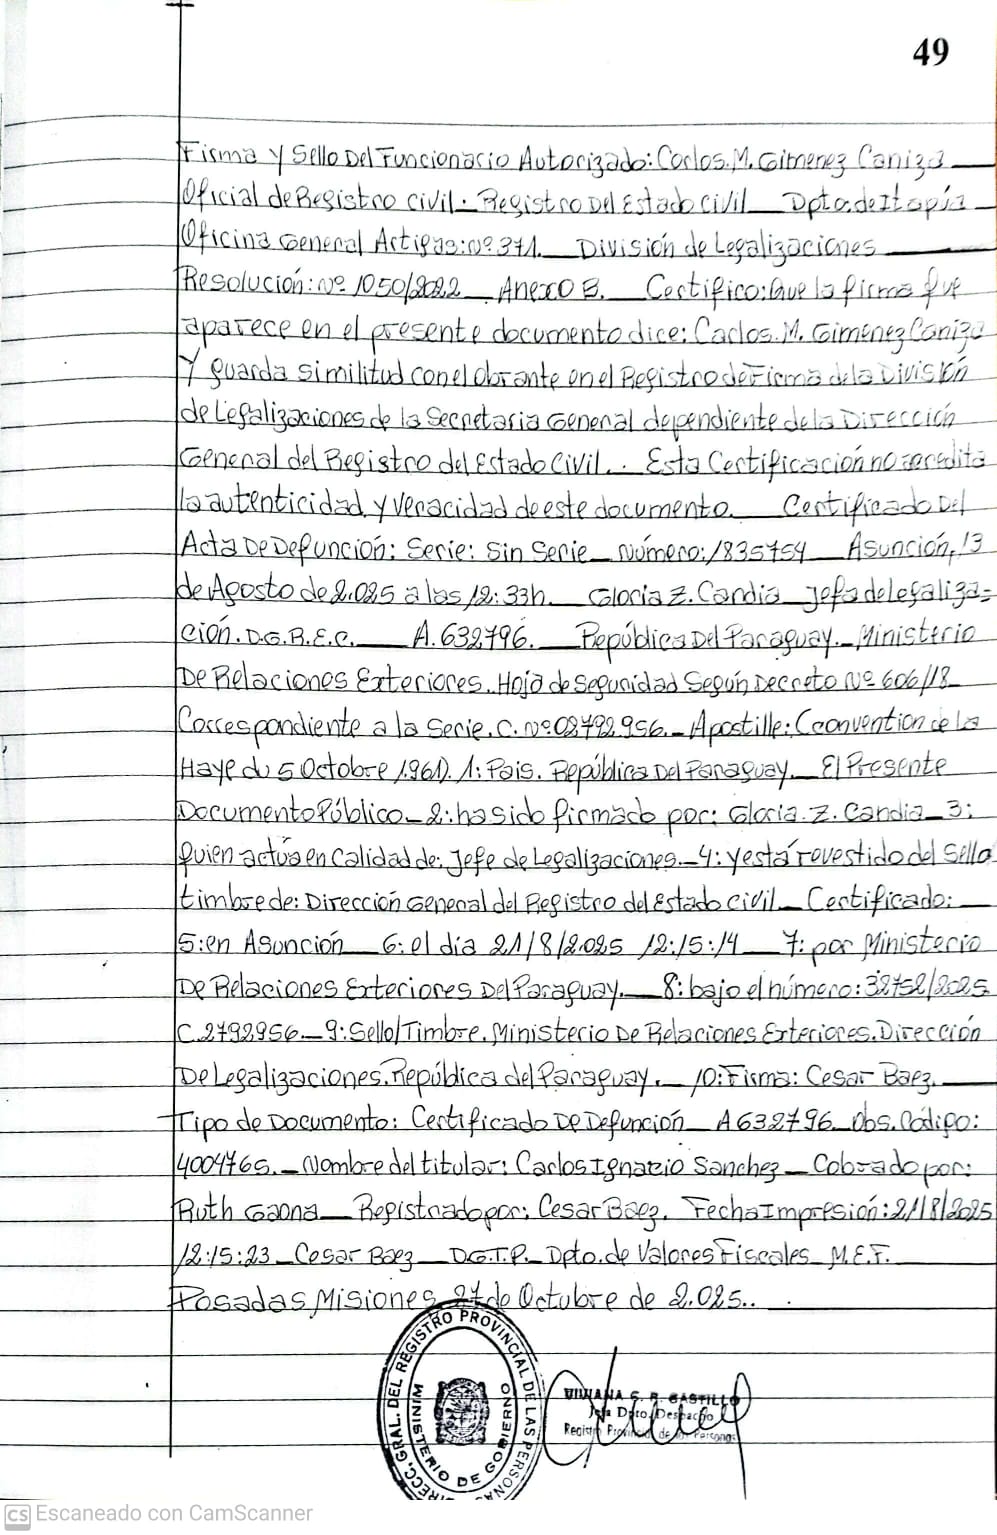 49
Firma y Sello Del Funcionario Autorizado: Carlos. M. Gimenez Caniza
Oficial de Registro civil. Registro Del Estado civil Dpto. de Itapúa
Oficina General Artigas: Nº 371. División de Legalizaciones
Resolución: Nº 1050/2022 Anexo B. Certifico: Que la firma que
aparece en el presente documento dice: Carlos. M. Gimenez Caniza
Y guarda similitud con el obrante en el Registro de Firma de la División
de Legalizaciones de la Secretaria General dependiente de la Dirección
General del Registro del Estado Civil. Esta Certificación no acredita
la autenticidad y veracidad de este documento. Certificado Del
Acta De Defunción: Serie: Sin Serie Número: 1835754 Asunción, 13
de Agosto de 2.025 a las 12:33h. Gloria Z. Candia Jefa de legaliza=
ción. D.G.R.E.C. A. 632796. República Del Paraguay. Ministerio
De Relaciones Exteriores. Hoja de Seguridad Según Decreto Nº 606/18
Correspondiente a la Serie. C. Nº 02792956. Apostille: (Convention de la
Haye du 5 Octobre 1.961). 1: Pais. República Del Paraguay. El Presente
Documento Público 2: ha sido firmado por: Gloria. Z. Candia 3:
quien actúa en Calidad de: Jefe de Legalizaciones. 4: y está revestido del Sello
timbre de: Dirección General del Registro del Estado civil Certificado:
5: en Asunción 6: el dia 21/8/2.025 12:15:14 7: por Ministerio
De Relaciones Exteriores Del Paraguay. 8: bajo el número: 38752/2025
C. 2792956 9: Sello/Timbre. Ministerio De Relaciones Exteriores. Dirección
De Legalizaciones. República del Paraguay. 10: Firma: Cesar Baez.
Tipo de Documento: Certificado De Defunción A 632796 Obs. Código:
4004765. Nombre del titular: Carlos Ignacio Sanchez Cobrado por:
Ruth Gaona Registrado por: Cesar Baez. Fecha Impresión: 21/8/2025
12:15:23 Cesar Baez D.G.T.P. Dpto. de Valores Fiscales M.E.F.
Posadas Misiones 27 de Octubre de 2.025..
DIRECC. GRAL. DEL REGISTRO PROVINCIAL DE LAS PERSONAS
MINISTERIO DE GOBIERNO
VIVIANA S. R. CASTILLO
Jefa Dpto. Despacho
Registro Provincial de las Personas
CS Escaneado con CamScanner